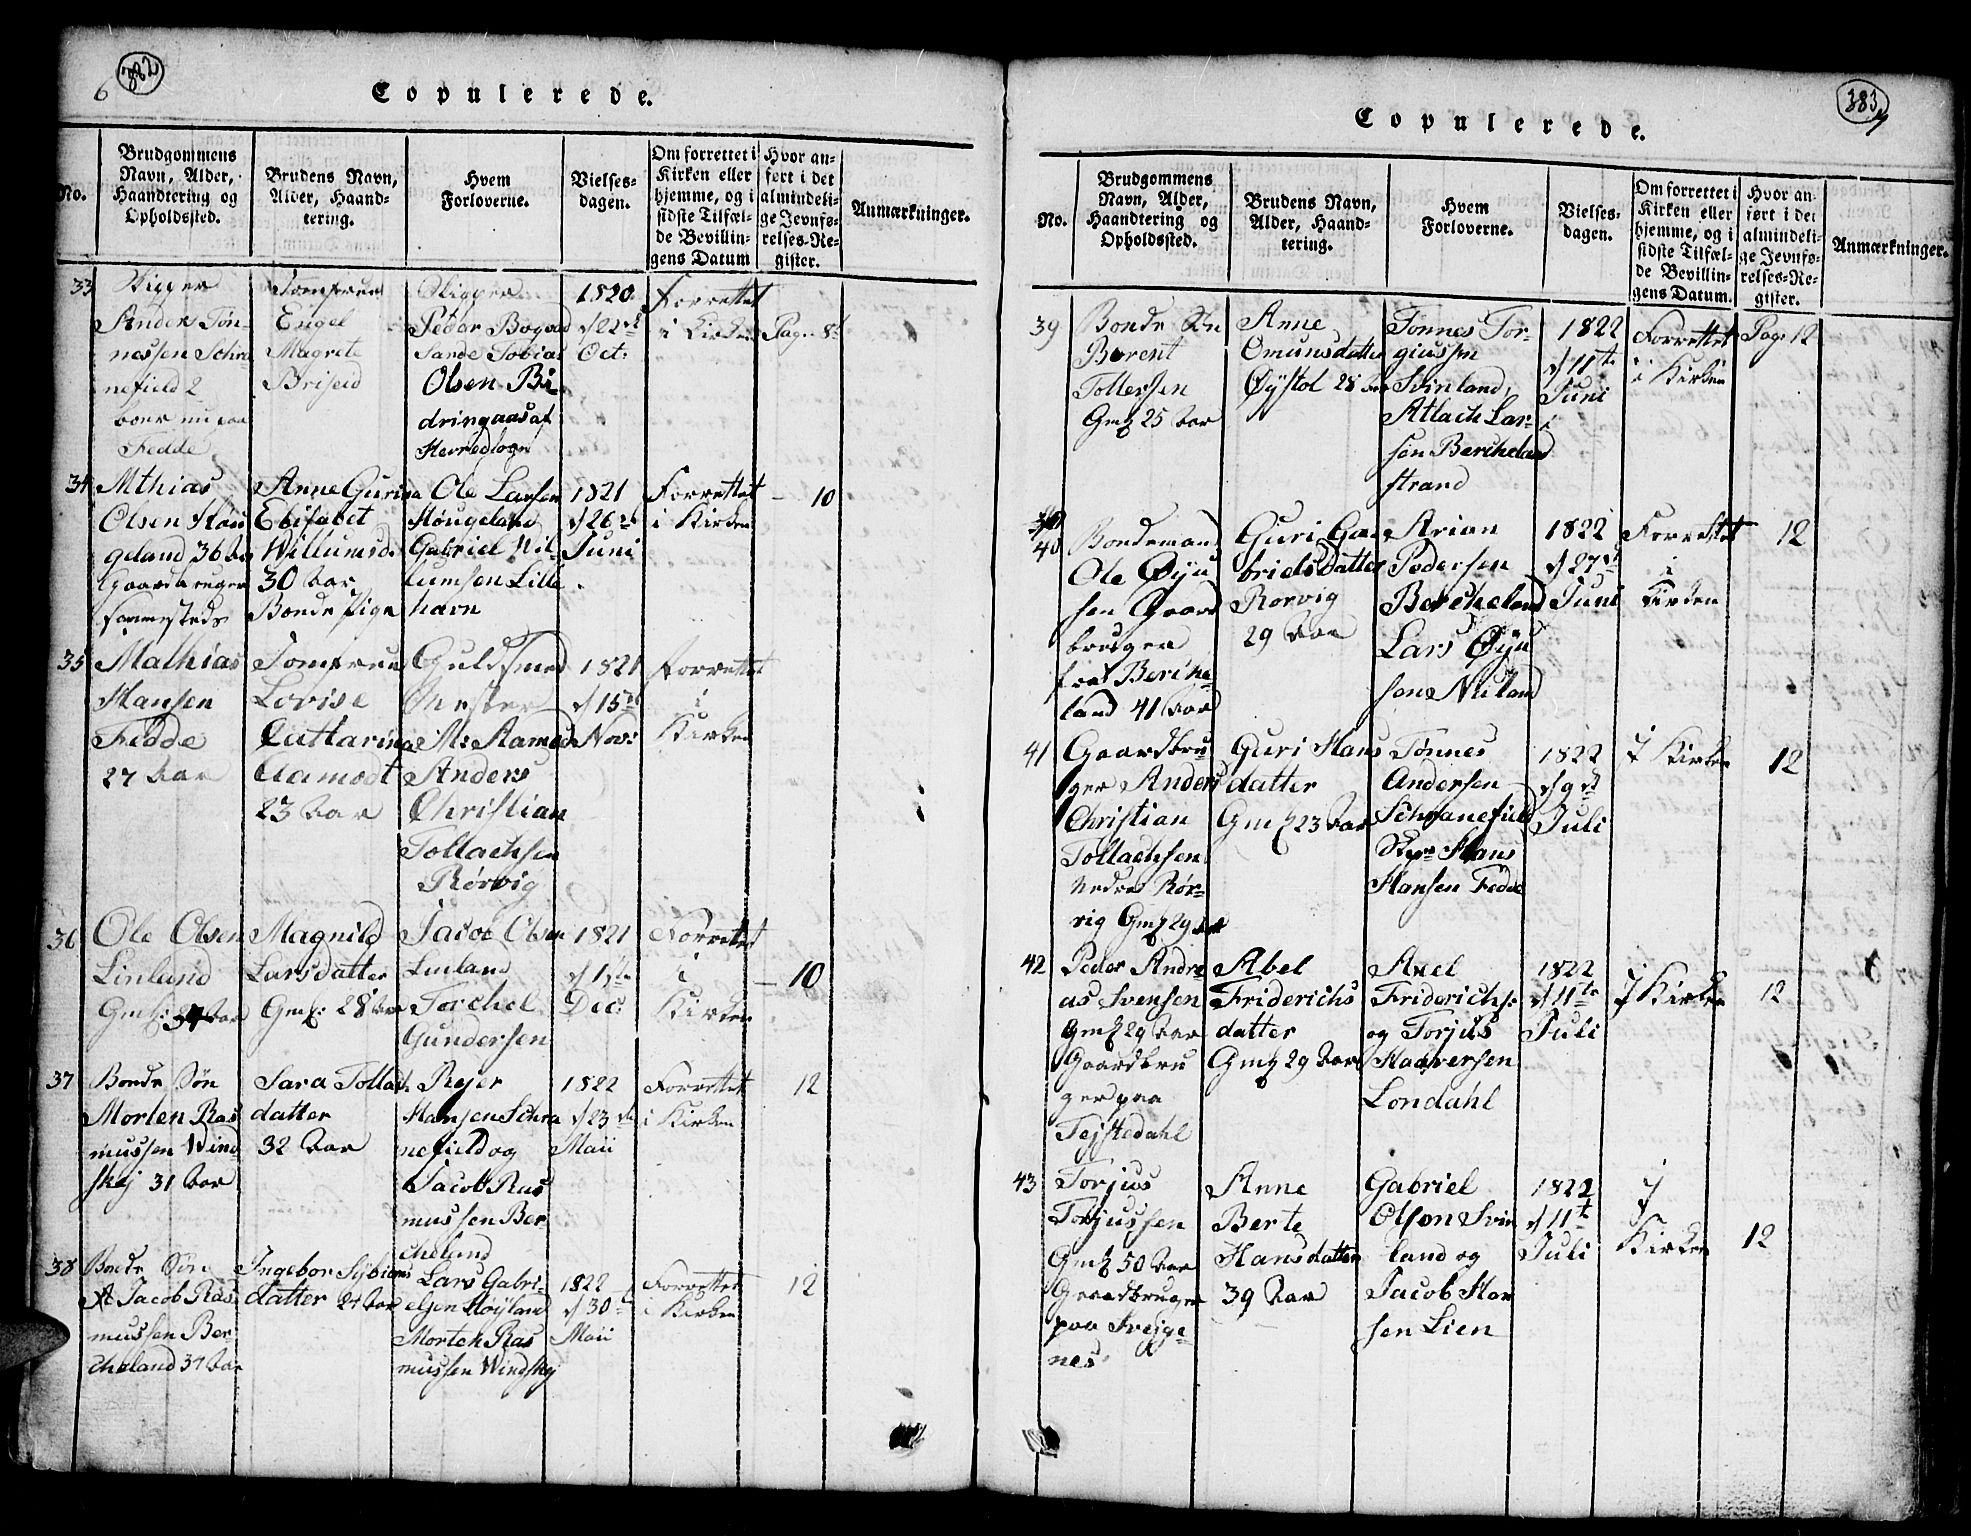 6 382
Copulerede.
No.
Brudgommens
Navn, Alder,
Haandtering og
Opholdssted.
Brudens Navn,
Alder, Haand-
tering.
Hvem
Forloverne.
Vielses-
dagen.
Om forrettet i
Kirken eller
hjemme, og i
sidste Tilfæl-
de Bevillin-
gens Datum
Hvor an-
ført i det
almindeli-
ge Jevnfø-
relses-Re-
gister.
Anmærkninger.
33
Anders Tön-
nessen Schra
nefield
boer nu paa
Fedde
Jomfrue
Engel
Magrete
Briseid
Peder Bogvad
Sande Tobias
Olsen
1820
d 22de
Oct:
Forrettet
i Kirken
Pag. 8
34
Mthias
Olsen Höu
geland 36 Aar
Gaardbruger
Anne Gurina
Elisabet
Willumsd:
30 Aar
Bonde Pige
Ole Larsen
Höugeland
Gabriel Wil
lumsen Lille
havn
1821
d 26de
Juni
Forrettet
i Kirken
- 10
35
Mathias
Hansen
Fedde
27 Aar
Jomfrue
Lovise
Cattarina
Aamodt
23 Aar
Guldsmed
Mester
M: Aamodt
Anders
Christian
Tollachsen
Rörvig
1821
d 15de
Nov:
Forrettet
i
Kirken
36
Ole Olsen
Linlund
Gml: 34 Aar
Magnild
Larsdatter
Gml: 28 Aar
Jacob Olsen
Linland
Torchel
Gundersen
1821
d 1ste
Dec:
Forrettet
i
Kirken
- 10
37
Bonde Sön
Morten Ras
mussen Wind
skej 31 Aar
Sara Tollach
datter
32 Aar
Rejer
Hansen Schra
nefield og
Jacob Ras
mussen Ber
cheland
1822
d 23de
Maii
Forrettet
i Kirken
12
38
Bonde Sön
Jacob Ras
mussen Ber-
cheland 37 Aar
Ingebor Sybians
datter 24 Aar
Lars Gabri-
elsen Höyland
Morten Ras
mussen Windskej
1822
d 30te
Maii
Forrettet
i Kirken
12
383 7
Copulerede.
No.
Brudgommens
Navn, Alder,
Haandtering og
Opholdssted.
Brudens Navn,
Alder, Haand-
tering.
Hvem
Forloverne.
Vielses-
dagen.
Om forrettet i
Kirken eller
hjemme, og i
sidste Tilfæl-
de Bevillin-
gens Datum.
Hvor an-
ført i det
almindeli-
ge Jevnfø-
relses-Re-
gister.
Anmærkninger.
39
Bonde Sön
Berent
Tollefsen
Gml 25 Aar
Anne
Omunsdatter
Øÿstol 28 Aar
Tonnes Tor-
giussen
Svinland,
Atlach Lar-
sen Bercheland
strand
1822
d 11te
Juni
Forrettet
i Kirken
Page 12
40
Bondemand
Ole Øyu
sen Gaard
bruger
fra Berche-
land 41 Aar
Guri Ga
brielsdatter
Rorvig
29 Aar
Arian
Pedersen
Bercheland
Lars Øyu
sen Nuland
1822
d 27de
Juni
Forrettet
i
Kirken
12
41
Gaardbru
ger Anders
Christian
Tollachsen
Nedre Rör-
vig Gml 29 Aar
Guri Hans
datter
Gml 23 Aar
Tönnes
Andersen
Schranefield
Hans
Hansen Fedde
1822
d 9de
Juli
I Kirken
12
42
Peder Andre-
as Svensen
Gml 29 Aar
Gaardbru
ger paa
Tejstedahl
Abel
Friderichs
datter
Gml 29 Aar
Axel
Friderichs:
og Torjus
Haaversen
Londahl
1822
d 11te
Juli
I Kirken
12
43
Torjus
Torjussen
Gml 50 Aar
Gaardbruger
paa Svejge-
nes
Anne
Berte
Hansdatter
39 Aar
Gabriel
Olsen Svin
land og
Jacob Han
sen Lien
1822
d 11te
Juli
I
Kirken
12